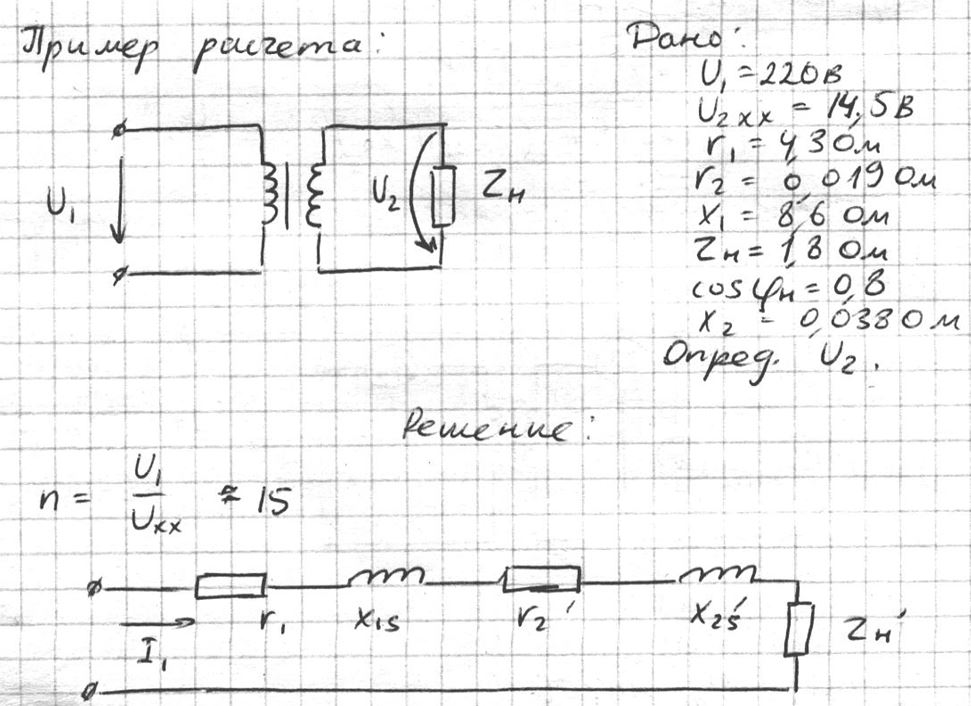 Пример расчета:
Дано:
U₁ = 220 в
U₂хх = 14,5 В
r₁ = 4,3 Ом
r₂ = 0,019 Ом
x₁ = 8,6 Ом
Zн = 1,8 Ом
cos φн = 0,8
x₂ = 0,038 Ом
Опред. U₂.
U₁
U₂
Zн
Решение:
n = U₁ / Uхх ≈ 15
I₁
r₁
x₁s
r₂'
x₂s'
Zн'